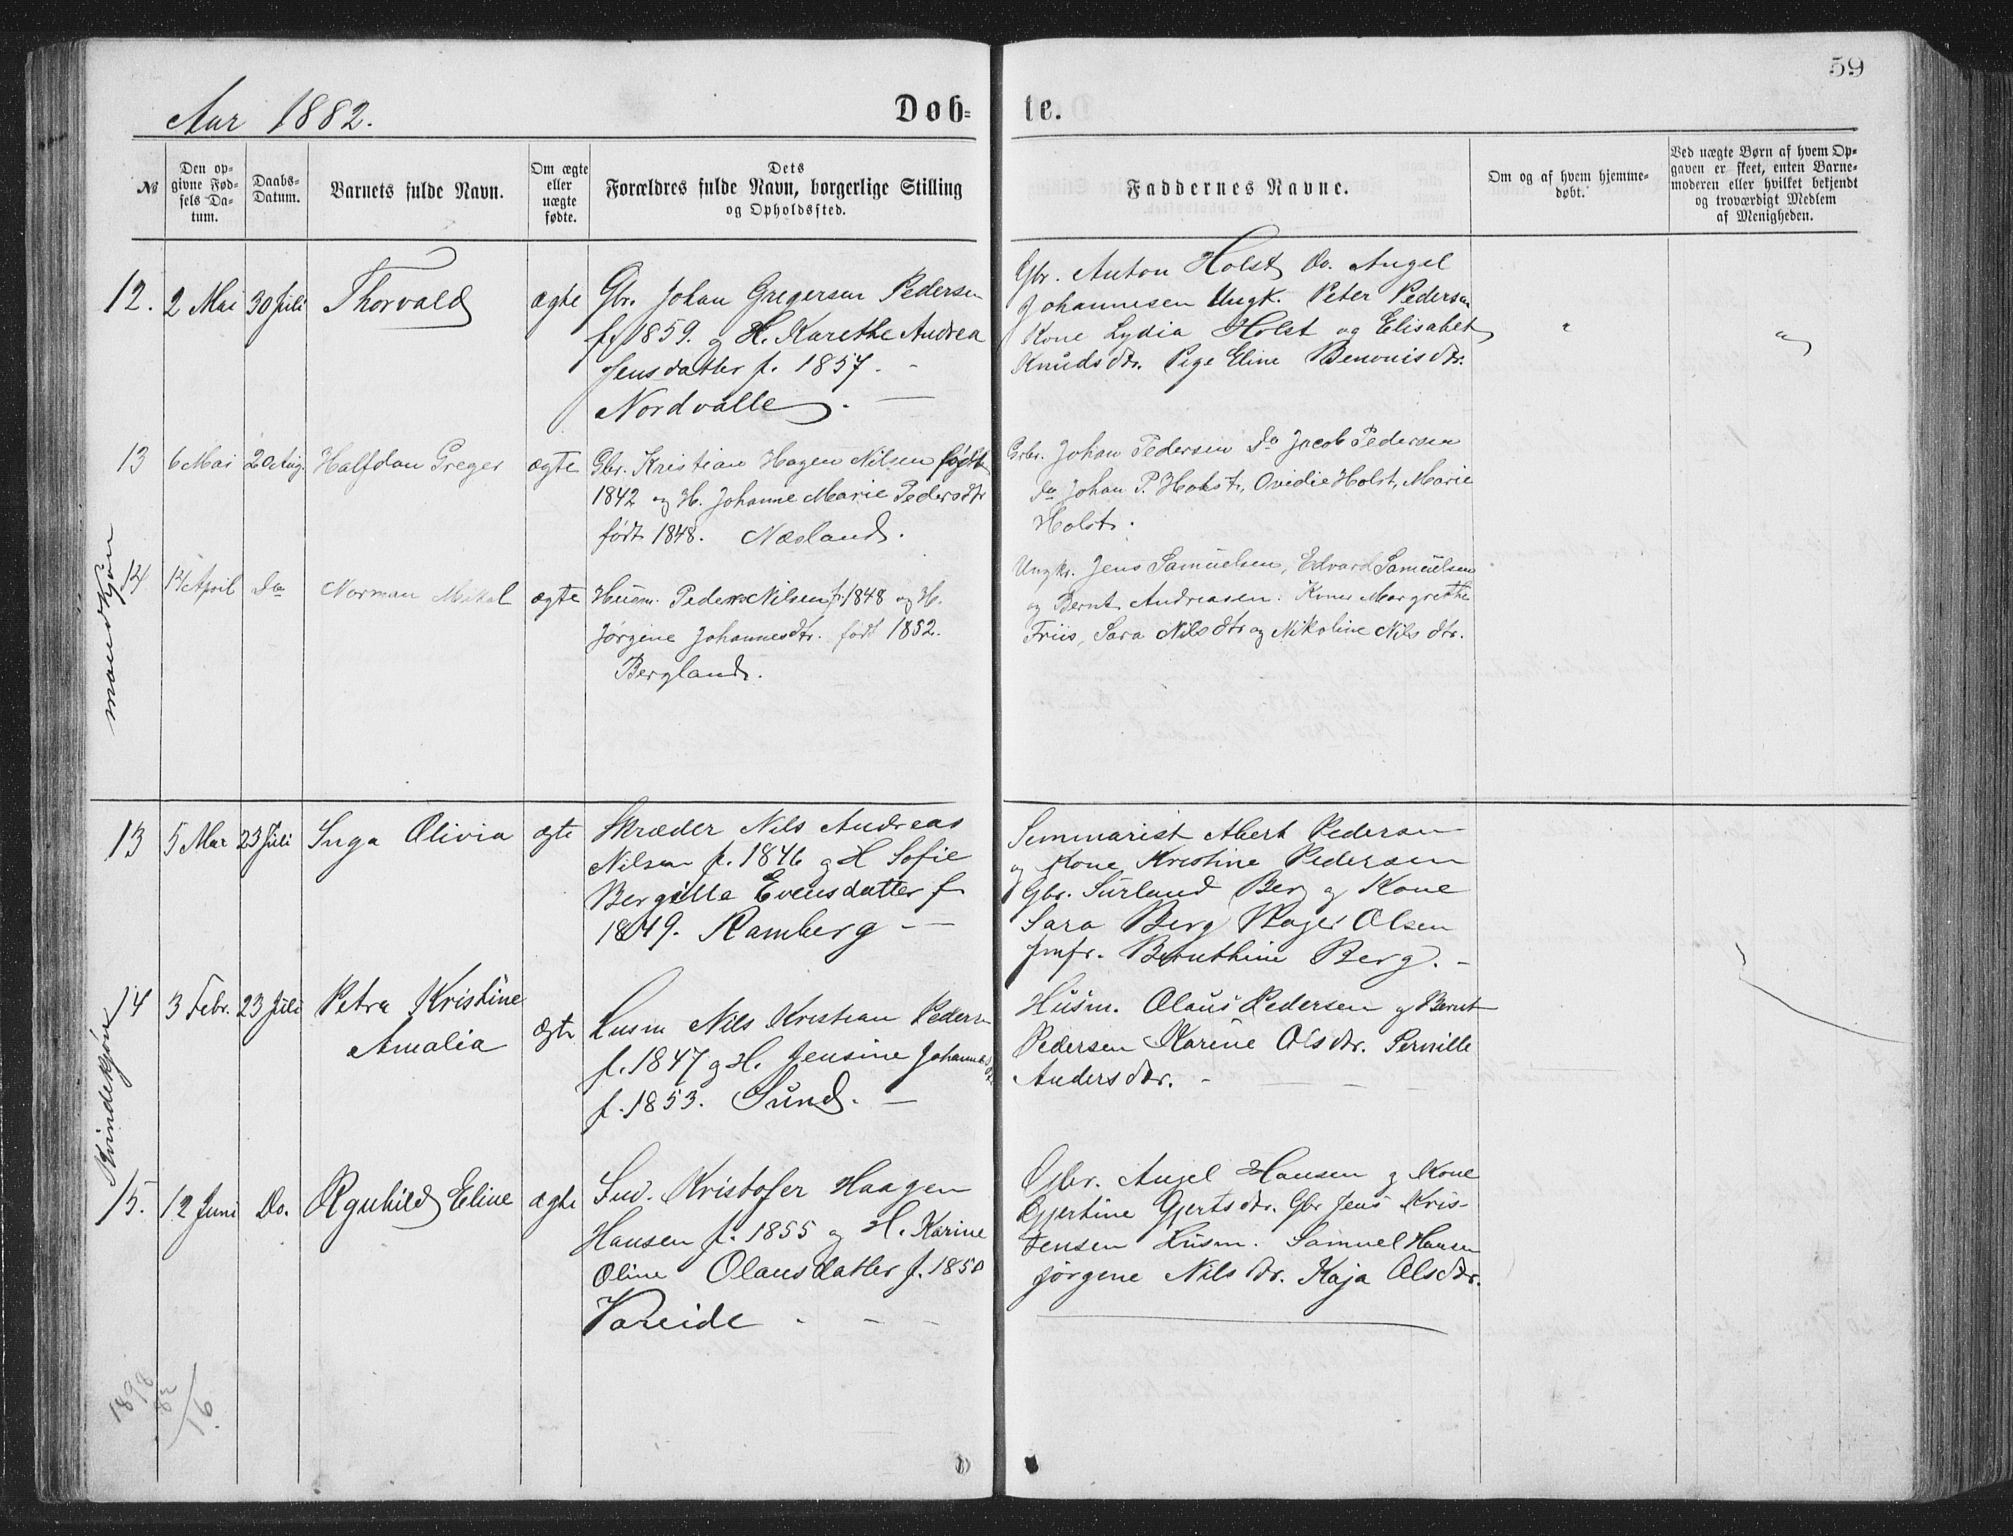 59
Aar 1882.
Døb-
te.
№
Den op-
givne Fød-
sels Da-
tum.
Daabs-
Datum.
Barnets fulde Navn.
Om ægte
eller
uægte
fødte.
Dets
Forældres fulde Navn, borgerlige Stilling
og Opholdssted.
Faddernes Navne.
Om og af hvem hjemme-
døbt.
Ved uægte Børn af hvem Op-
gaven er skeet, enten Barne-
moderen eller hvilket bekjendt
og troværdigt Medlem
af Menigheden.
12. 2 Mai 30 Juli Thorvald ægte
Gbr. Johan Gregersen Pedersen
f. 1859. og H. Karethe Andrea
Jensdatter f. 1857. -
Nordvalle.
Gbr. Anton Holst Do. Angel
Johannesen Ungk. Peter Pedersen
Kone Lydia Holst og Elisabet
Knudsdtr. Pige Eline Benonisdtr.
" "
13 6 Mai 20 Aug. Halfdan Greger ægte
Gbr. Kristian Hagen Nilsen født
1842 og H. Johanne Marie Pedersdtr
født 1848. Næsland.
Gbr. Johan Pedersen Do Jacob Pedersen
Do Johan P. Holst, Ovidie Holst, Marie
Holst.
mandkjøn
14 14 April Do Norman Mikal ægte
Husm. Peder Nilsen f. 1848 og H.
Jørgine Johannesdtr. født 1852.
Bergland.
Ungkr. Jens Samuelsen, Edvard Samuelsen
og Bernt Andreasen. Koner Margrethe
Friis, Sara Nilsdtr og Nikoline Nilsdtr.
13 5 Mar 23 Juli Inga Olivia ægte
Skræder Nils Andreas
Nilsen f. 1846 og H Sofie
Bergitta Evensdatter f
1849. Ramberg - -
Seminarist Abert Pedersen
og Kone Kristine Pedersen
Gbr. Surland Berg og Kone
Sara Berg Roger Olsen
Jmfr. Bernthine Berg. -
Kvindekjøn
14 3 Febr. 23 Juli Petra Kristine
Amalia ægte
Husm Nils Kristian Pedersen
f. 1847 og H. Jensine Johannesdtr.
f. 1853. Sund. -
Husm. Olaus Pedersen og Bernt
Pedersen Karine Olsdtr. Pernille
Andersdtr. -
15. 12 Juni Do. Ragnhild Eline ægte
Ind. Kristofer Haagen
Hansen f. 1855 og H. Karine
Oline Olausdatter f. 1850
Vareide - - -
Gbr. Angel Hansen og Kone
Gjertine Gjertsdtr. Gbr Jens Kris-
tensen Husm. Samuel Hansen
Jørgene Nilsdtr. Kaja Olsdtr.
1898
82
16